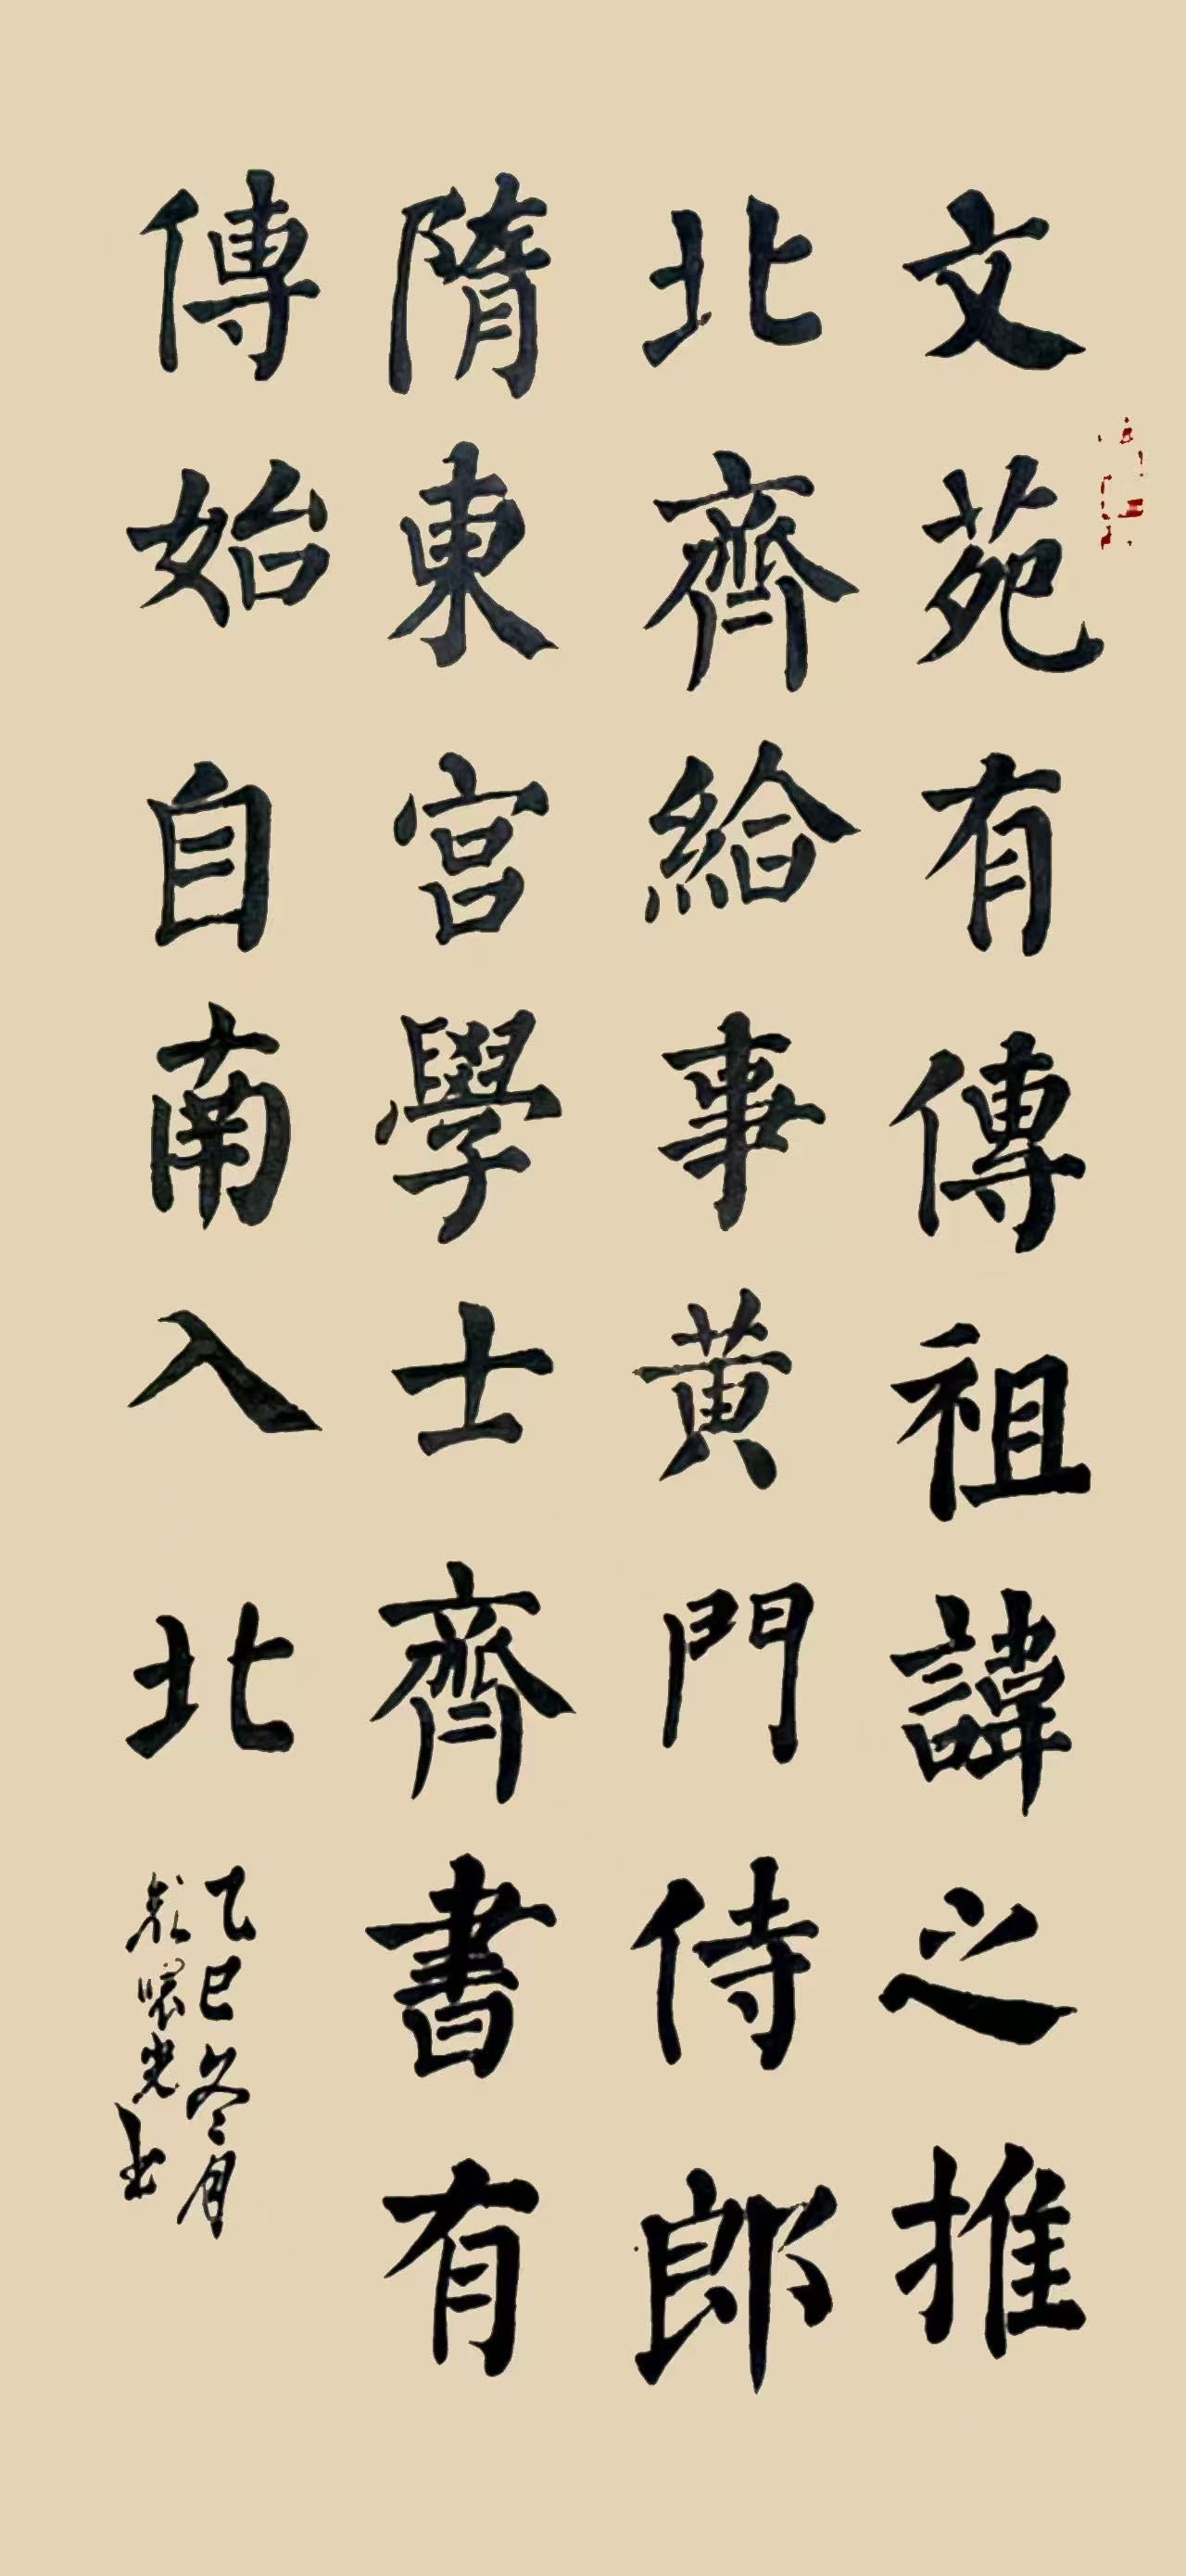 文苑有傳祖諱之推
北齊給事黃門侍郎
隋東宮學士齊書有
傳始自南入北
乙巳冬月
光書